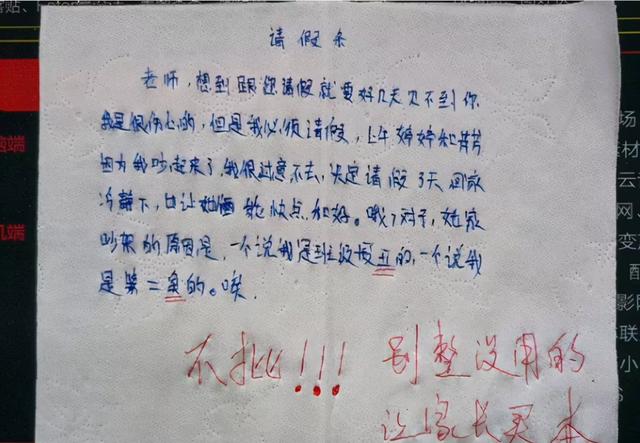 请假条
老师，想到跟您请假就要好几天见不到你
我是很伤心的，但是我必须请假，上午婷婷和芳芳
因为我吵起来了，我很过意不去，决定请假3天回家
冷静下，也让她俩能快点和好。哦，对了，她家
吵架的原因是，一个说我是班级最丑的，一个说我
是第二丑的。唉.
不批!!! 别整没用的
让家长买本
贴、
端
机端
场
素材
云
网、
变
配
影
联
小